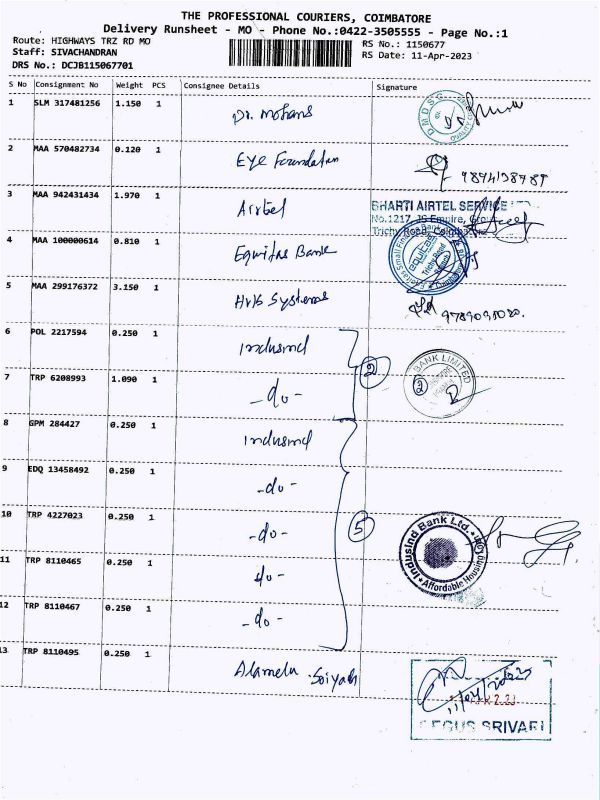 THE PROFESSIONAL COURIERS, COIMBATORE
Delivery Runsheet - MO - Phone No.:0422-3505555 - Page No.:1
Route: HIGHWAYS TRZ RD MO
RS No.: 1150677
Staff: SIVACHANDRAN
RS Date: 11-Apr-2023
DRS No.: DCJB115067701
S No Consignment No Weight PCS Consignee Details Signature
1 SLM 317481256 1.150 1 Dr. Mohans
2 MAA 570482734 0.120 1 Eye Foundation
3 MAA 942431434 1.970 1 Airtel
BHARTI AIRTEL SERVICE LTD.
No.1217, JS Empire,
Trichy Road, Coimbatore
4 MAA 100000614 0.810 1 Equitas Bank
equitas
Trichy Road
Branch
5 MAA 299176372 3.150 1 HVB Systems
6 POL 2217594 0.250 1 Indusind
2
BANK LIMITED
2
7 TRP 6208993 1.090 1 -do-
8 GPM 284427 0.250 1 Indusind
9 EDQ 13458492 0.250 1 -do-
10 TRP 4227023 0.250 1 -do-
5
Indusind Bank Ltd.
Affordable Housing
11 TRP 8110465 0.250 1 do-
12 TRP 8110467 0.250 1 -do-
13 TRP 8110495 0.250 1 Alamelu
11/04/2023
REGUS SRIVARI